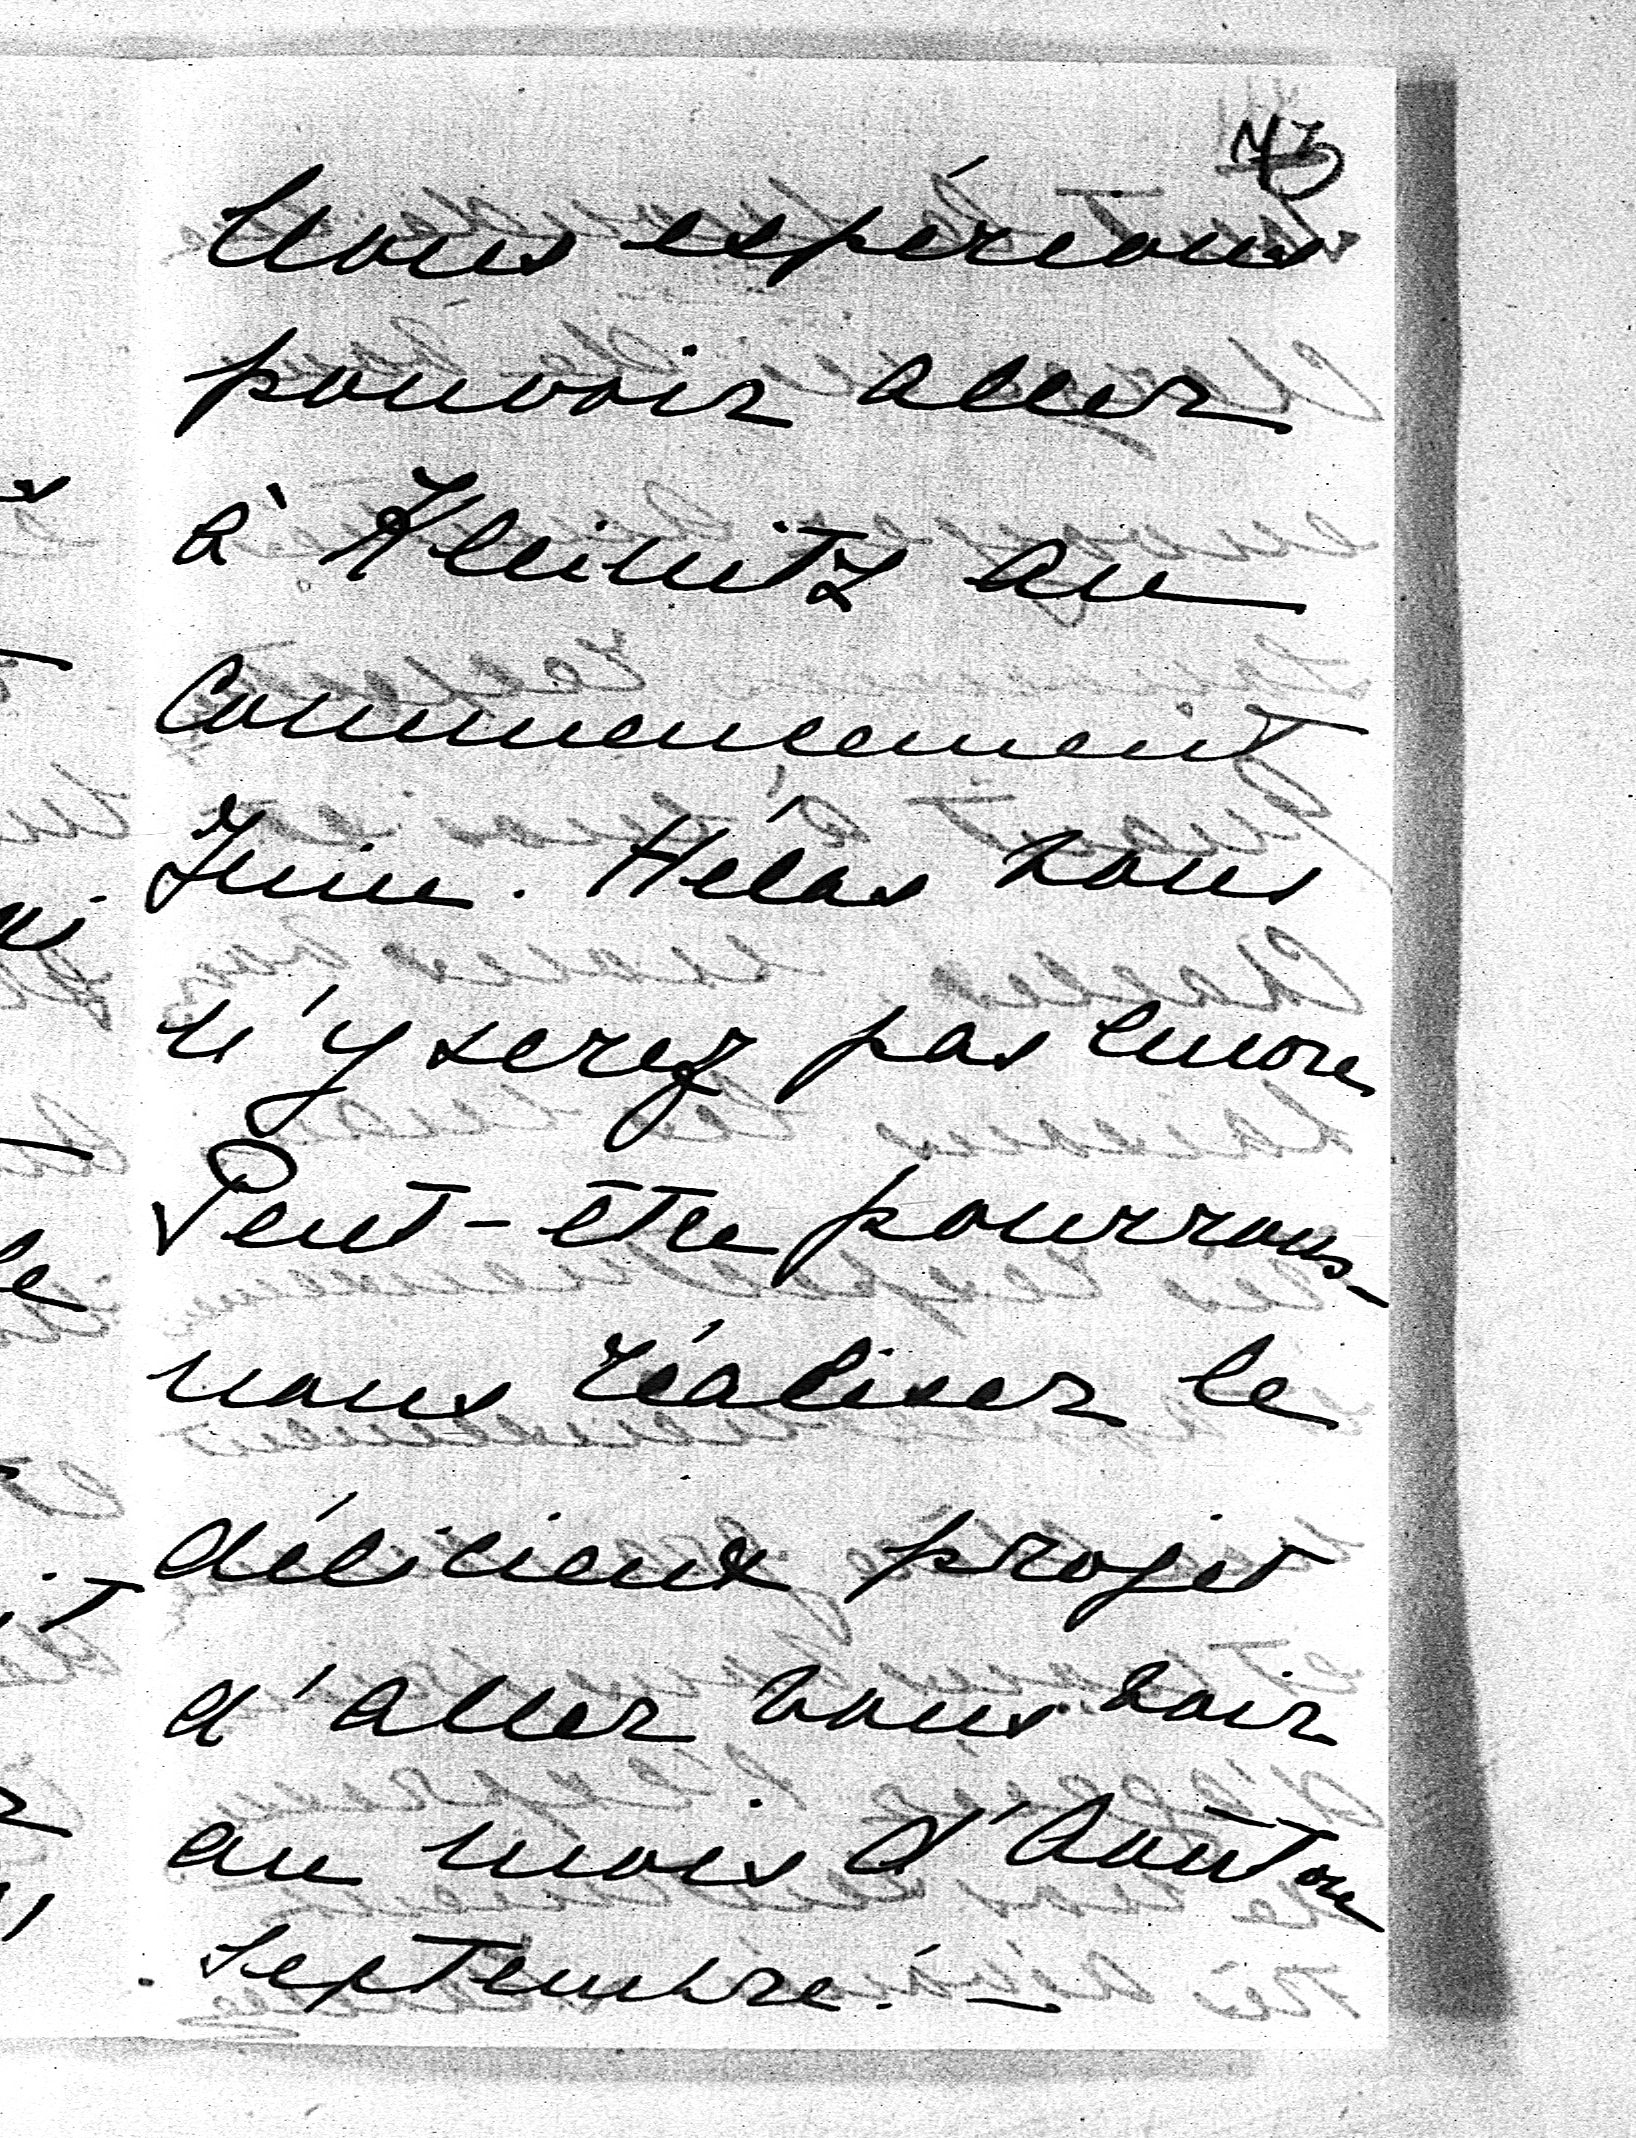 73
Nous espérions
pouvoir aller
à Kleinitz au
Commencement
Juin. Hélas vous
n'y serez pas encore
Peut-être pourrons-
nous réaliser le
délicieux projet
d'aller vous voir
au mois d'Août ou
Septembre. —